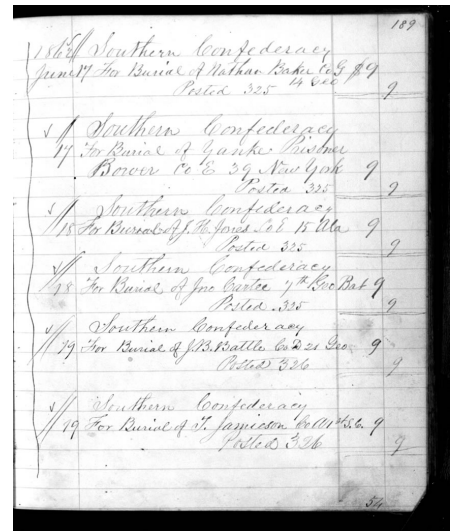 189
1862 Southern Confederacy
June 17 For Burial of Nathan Baker Co G $9
Posted 325 14 Geo 9
Southern Confederacy
17 For Burial of Yanke Prisoner
Bower Co E 39 New York 9
Posted 325 9
Southern Confederacy
18 For Burial of J. H. Jones Co E 15 Ala 9
Posted 325 9
Southern Confederacy
18 For Burial of Jno Carter 7th Geo Bat 9
Posted 325 9
Southern Confederacy
19 For Burial of J. B. Battle Co D 21 Geo 9
Posted 326 9
Southern Confederacy
19 For Burial of T. Jamieson Co A 1st S.C. 9
Posted 326 9
54